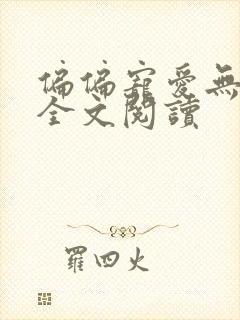 偏偏寵愛無
全文閱讀
羅四火